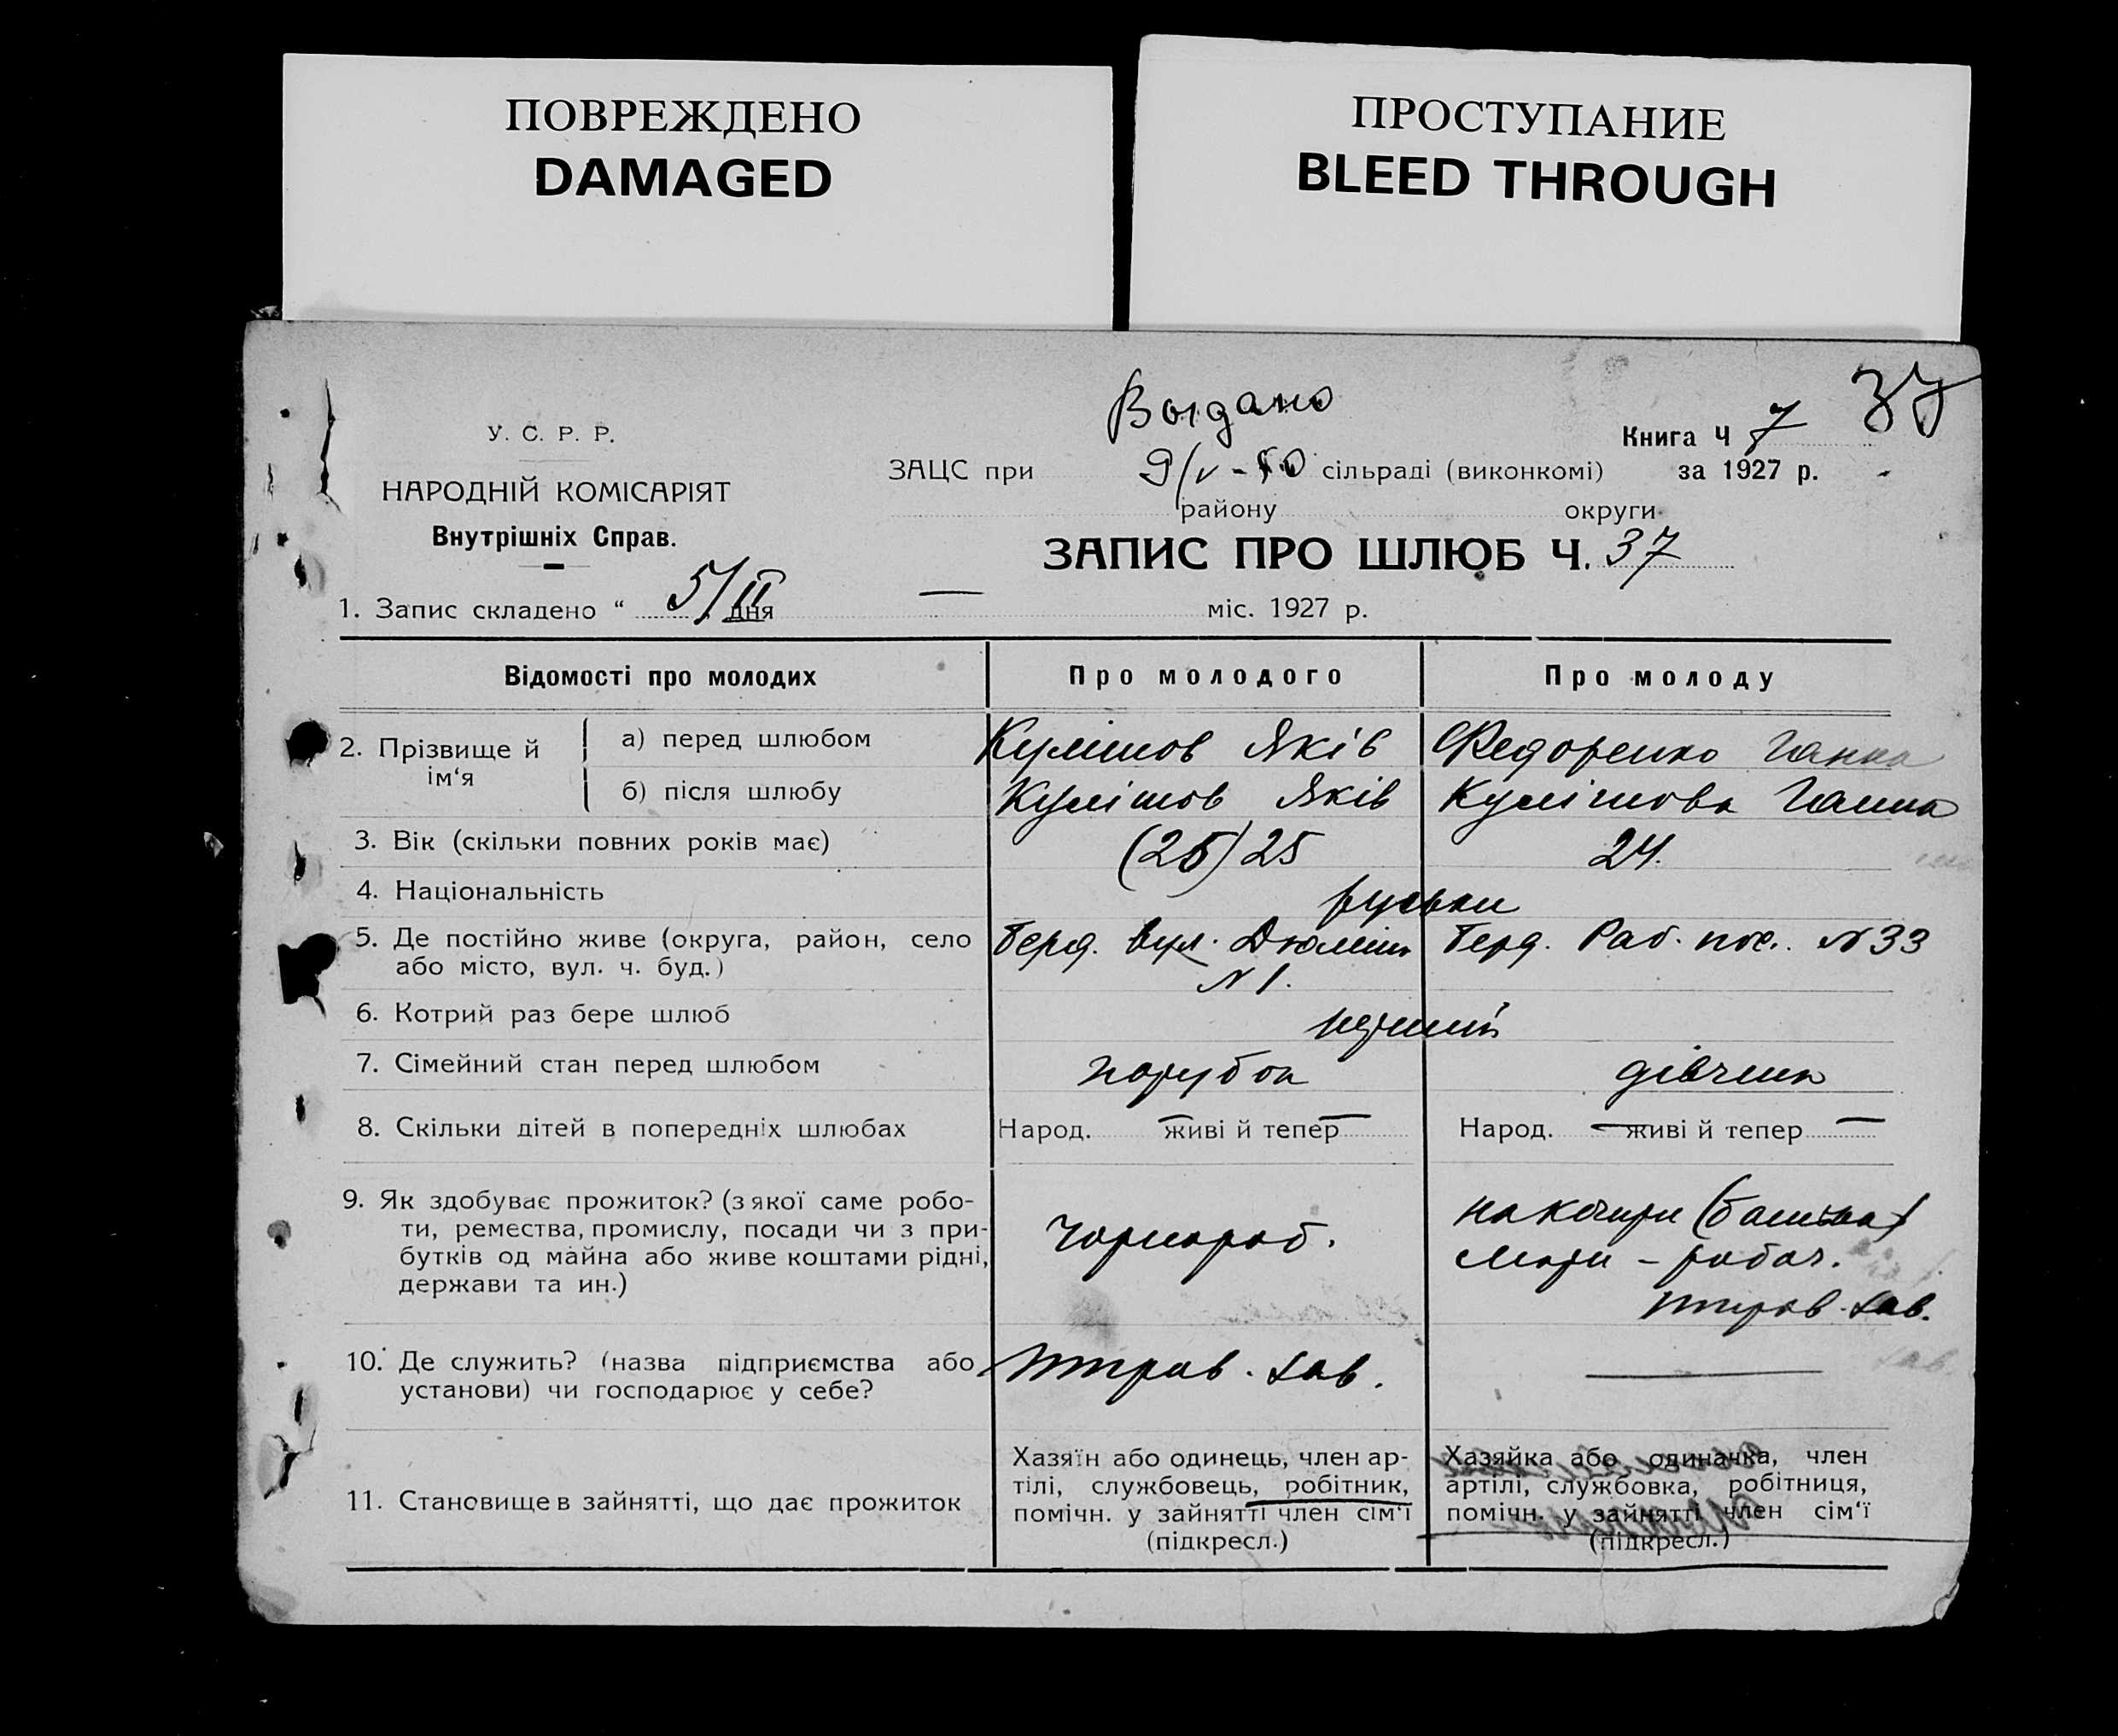 ПОВРЕЖДЕНО
DAMAGED
ПРОСТУПАНИЕ
BLEED THROUGH
Выдано
37
У. С. Р. Р.
Книга Ч 7
ЗАЦС при 9/V-50 сільраді (виконкомі) за 1927 р.
НАРОДНІЙ КОМІСАРІЯТ
району округи
Внутрішніх Справ.
ЗАПИС ПРО ШЛЮБ Ч. 37
1. Запис складено “ 5/II дня — міс. 1927 р.
Відомості про молодих Про молодого Про молоду
2. Прізвище й ім‘я
а) перед шлюбом Кулішов Яків Федоренко Ганна
б) після шлюбу Кулішов Яків Кулішова Ганна
3. Вік (скільки повних років має) (26) 25 24.
4. Національність руськи
5. Де постійно живе (округа, район, село Берд. вул. Дюмін Берд. Раб. пос. №33
або місто, вул. ч. буд.) №1.
6. Котрий раз бере шлюб перший
7. Сімейний стан перед шлюбом парубок дівчина
8. Скільки дітей в попередніх шлюбах Народ. — живі й тепер — Народ. — живі й тепер —
9. Як здобуває прожиток? (з якої саме робо-
ти, ремества, промислу, посади чи з при-
бутків од майна або живе коштами рідні,
держави та ин.)
Чорнороб.
на
робоч.
10. Де служить? (назва підприємства або
установи) чи господарює у себе?
11. Становище в зайнятті, що дає прожиток
Хазяїн або одинець, член ар-
тілі, службовець, робітник,
помічн. у зайнятті член сім‘ї
(підкресл.)
Хазяйка або одиначка, член
артілі, службовка, робітниця,
помічн. у зайнятті член сім‘ї
(підкресл.)